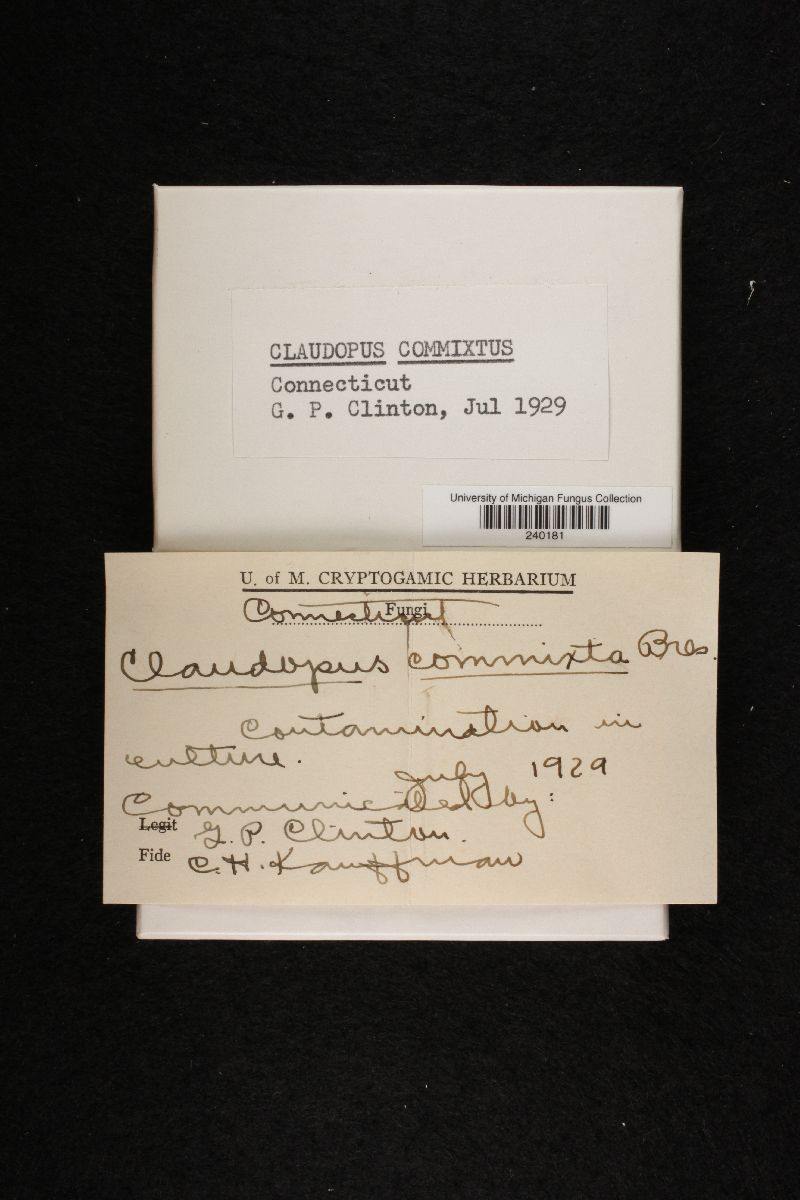 CLAUDOPUS COMMIXTUS
Connecticut
G. P. Clinton, Jul 1929
University of Michigan Fungus Collection
240181
U. of M. CRYPTOGAMIC HERBARIUM
Fungi
Connecticut
Claudopus commixta Bres.
Contamination in
culture.
July 1929
Communicated by:
Legit G. P. Clinton.
Fide C. H. Kauffman